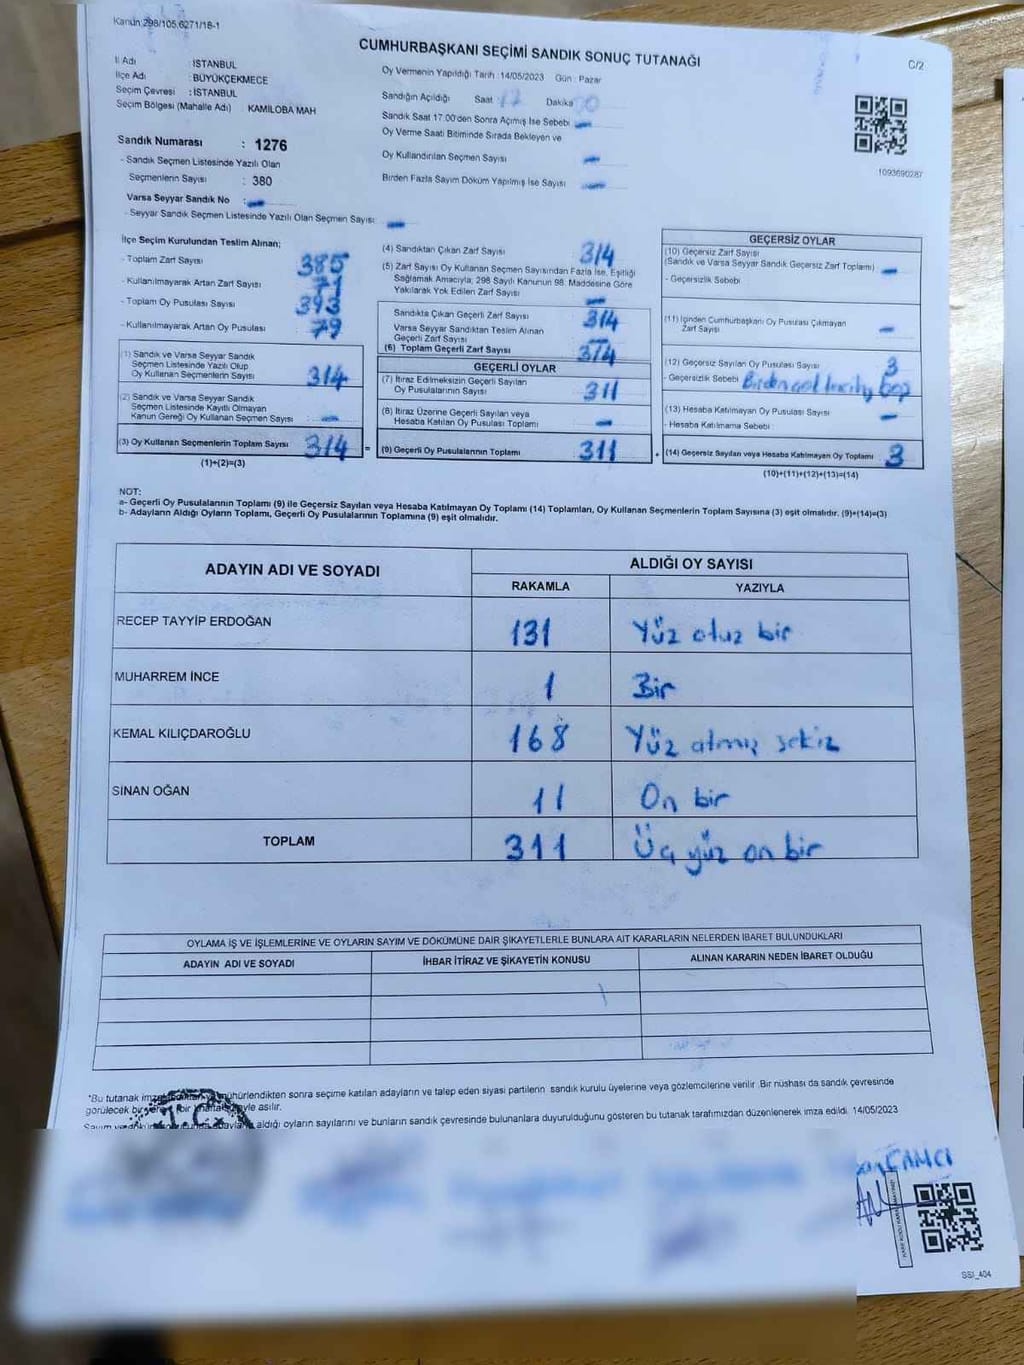 Kanun:298/105,6271/18-1
CUMHURBAŞKANI SEÇİMİ SANDIK SONUÇ TUTANAĞI
C/2
İl Adı : İSTANBUL
İlçe Adı : BÜYÜKÇEKMECE
Seçim Çevresi : İSTANBUL
Seçim Bölgesi (Mahalle Adı) KAMİLOBA MAH
Sandık Numarası : 1276
- Sandık Seçmen Listesinde Yazılı Olan
Seçmenlerin Sayısı : 380
Varsa Seyyar Sandık No : -
- Seyyar Sandık Seçmen Listesinde Yazılı Olan Seçmen Sayısı: -
Oy Vermenin Yapıldığı Tarih : 14/05/2023 Gün : Pazar
Sandığın Açıldığı Saat : 17 Dakika 00
Sandık Saat 17.00'den Sonra Açımış İse Sebebi -
Oy Verme Saati Bitiminde Sırada Bekleyen ve
Oy Kullandırılan Seçmen Sayısı -
Birden Fazla Sayım Döküm Yapılmış İse Sayısı -
1093690287
İlçe Seçim Kurulundan Teslim Alınan;
- Toplam Zarf Sayısı 385
- Kullanılmayarak Artan Zarf Sayısı 71
- Toplam Oy Pusulası Sayısı 393
- Kullanılmayarak Artan Oy Pusulası 79
(1) Sandık ve Varsa Seyyar Sandık
Seçmen Listesinde Yazılı Olup
Oy Kullanan Seçmenlerin Sayısı 314
(2) Sandık ve Varsa Seyyar Sandık
Seçmen Listesinde Kayıtlı Olmayan
Kanun Gereği Oy Kullanan Seçmen Sayısı -
(3) Oy Kullanan Seçmenlerin Toplam Sayısı 314 =
(1)+(2)=(3)
(4) Sandıktan Çıkan Zarf Sayısı 314
(5) Zarf Sayısı Oy Kullanan Seçmen Sayısından Fazla İse, Eşitliği
Sağlamak Amacıyla; 298 Sayılı Kanunun 98. Maddesine Göre
Yakılarak Yok Edilen Zarf Sayısı -
Sandıkta Çıkan Geçerli Zarf Sayısı 314
Varsa Seyyar Sandıktan Teslim Alınan
Geçerli Zarf Sayısı -
(6) Toplam Geçerli Zarf Sayısı 314
GEÇERLİ OYLAR
(7) İtiraz Edilmeksizin Geçerli Sayılan
Oy Pusulalarının Sayısı 311
(8) İtiraz Üzerine Geçerli Sayılan veya
Hesaba Katılan Oy Pusulası Toplamı -
(9) Geçerli Oy Pusulalarının Toplamı 311 +
GEÇERSİZ OYLAR
(10) Geçersiz Zarf Sayısı
(Sandık ve Varsa Seyyar Sandık Geçersiz Zarf Toplamı) -
- Geçersizlik Sebebi
(11) İçinden Cumhurbaşkanı Oy Pusulası Çıkmayan
Zarf Sayısı -
(12) Geçersiz Sayılan Oy Pusulası Sayısı 3
- Geçersizlik Sebebi
(13) Hesaba Katılmayan Oy Pusulası Sayısı -
- Hesaba Katılmama Sebebi
(14) Geçersiz Sayılan veya Hesaba Katılmayan Oy Toplamı 3
(10)+(11)+(12)+(13)=(14)
NOT:
a- Geçerli Oy Pusulalarının Toplamı (9) ile Geçersiz Sayılan veya Hesaba Katılmayan Oy Toplamı (14) Toplamları, Oy Kullanan Seçmenlerin Toplam Sayısına (3) eşit olmalıdır. (9)+(14)=(3)
b- Adayların Aldığı Oyların Toplamı, Geçerli Oy Pusulalarının Toplamına (9) eşit olmalıdır.
ADAYIN ADI VE SOYADI ALDIĞI OY SAYISI
RAKAMLA YAZIYLA
RECEP TAYYİP ERDOĞAN 131 Yüz otuz bir
MUHARREM İNCE 1 Bir
KEMAL KILIÇDAROĞLU 168 Yüz atmış sekiz
SİNAN OĞAN 11 On bir
TOPLAM 311 Üç yüz on bir
OYLAMA İŞ VE İŞLEMLERİNE VE OYLARIN SAYIM VE DÖKÜMÜNE DAİR ŞİKAYETLERLE BUNLARA AİT KARARLARIN NELERDEN İBARET BULUNDUKLARI
ADAYIN ADI VE SOYADI İHBAR İTİRAZ VE ŞİKAYETİN KONUSU ALINAN KARARIN NEDEN İBARET OLDUĞU
*Bu tutanak mühürlendikten sonra seçime katılan adayların ve talep eden siyasi partilerin sandık kurulu üyelerine veya gözlemcilerine verilir .Bir nüshası da sandık çevresinde
görülecek bir asılır.
aldığı oyların sayılarını ve bunların sandık çevresinde bulunanlara duyurulduğunu gösteren bu tutanak tarafımızdan düzenlenerek imza edildi. 14/05/2023
T.C.
ÇAMCI
SSI_404